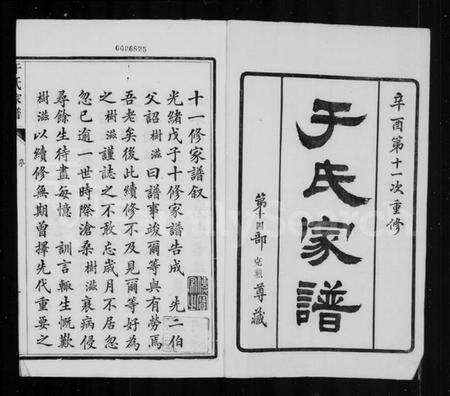 0426825
辛酉第十一次重修
于氏家譜
第十四部
尊藏
于氏家譜
序
十一修家譜叙
光緒戊子十修家譜告成 先二伯
父詔樹滋曰譜事竣爾等與有勞焉
吾老矣後此續修不及見爾等好為
之樹滋謹誌之不敢忘歲月不居忽
忽已逾一世時際滄桑樹滋衰病侵
尋餘生待盡每憶 訓言輒生慨歎
樹滋以續修無期曾擇先代重要之